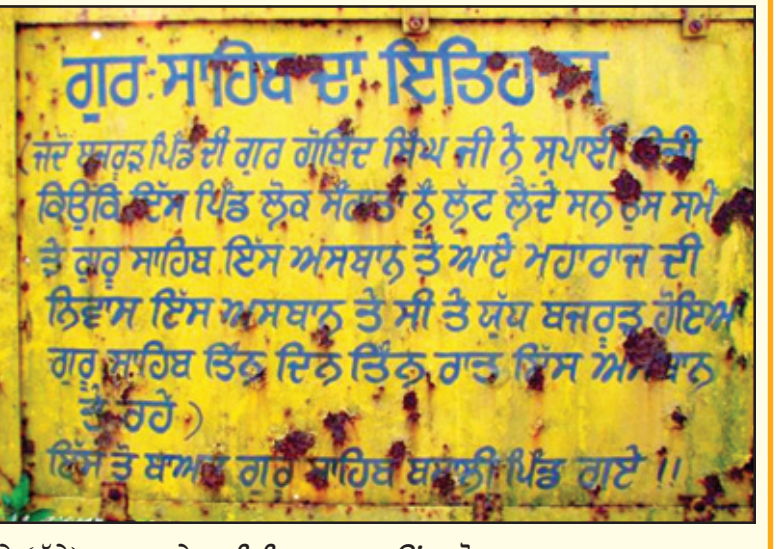 ਗੁਰ ਸਾਹਿਬ ਦਾ ਇਤਿਹਾਸ
(ਜਦੋਂ ਬਜਰੁੜ ਪਿੰਡ ਦੀ ਗੁਰ ਗੋਬਿੰਦ ਸਿੰਘ ਜੀ ਨੇ ਸੁਪਾਈ ਕੀਤੀ
ਕਿਉਂਕਿ ਇੱਸ ਪਿੰਡ ਲੋਕ ਸੰਗਤਾਂ ਨੂੰ ਲੁੱਟ ਲੈਂਦੇ ਸਨ ਉਸ ਸਮੇਂ
ਤੇ ਗੁਰੂ ਸਾਹਿਬ ਇੱਸ ਅਸਥਾਨ ਤੇ ਆਏ ਮਹਾਰਾਜ ਦੀ
ਨਿਵਾਸ ਇੱਸ ਅਸਥਾਨ ਤੇ ਸੀ ਤੇ ਯੁੱਧ ਬਜਰੁੜ ਹੋਇਆ
ਗੁਰੂ ਸਾਹਿਬ ਤਿੰਨ ਦਿਨ ਤਿੰਨ ਰਾਤ ਇੱਸ ਅਸਥਾਨ
ਤੇ ਰਹੇ )
ਇੱਸ ਤੋ ਬਾਅਦ ਗੁਰ ਸਾਹਿਬ ਬਸਾਲੀ ਪਿੰਡ ਗਏ !!